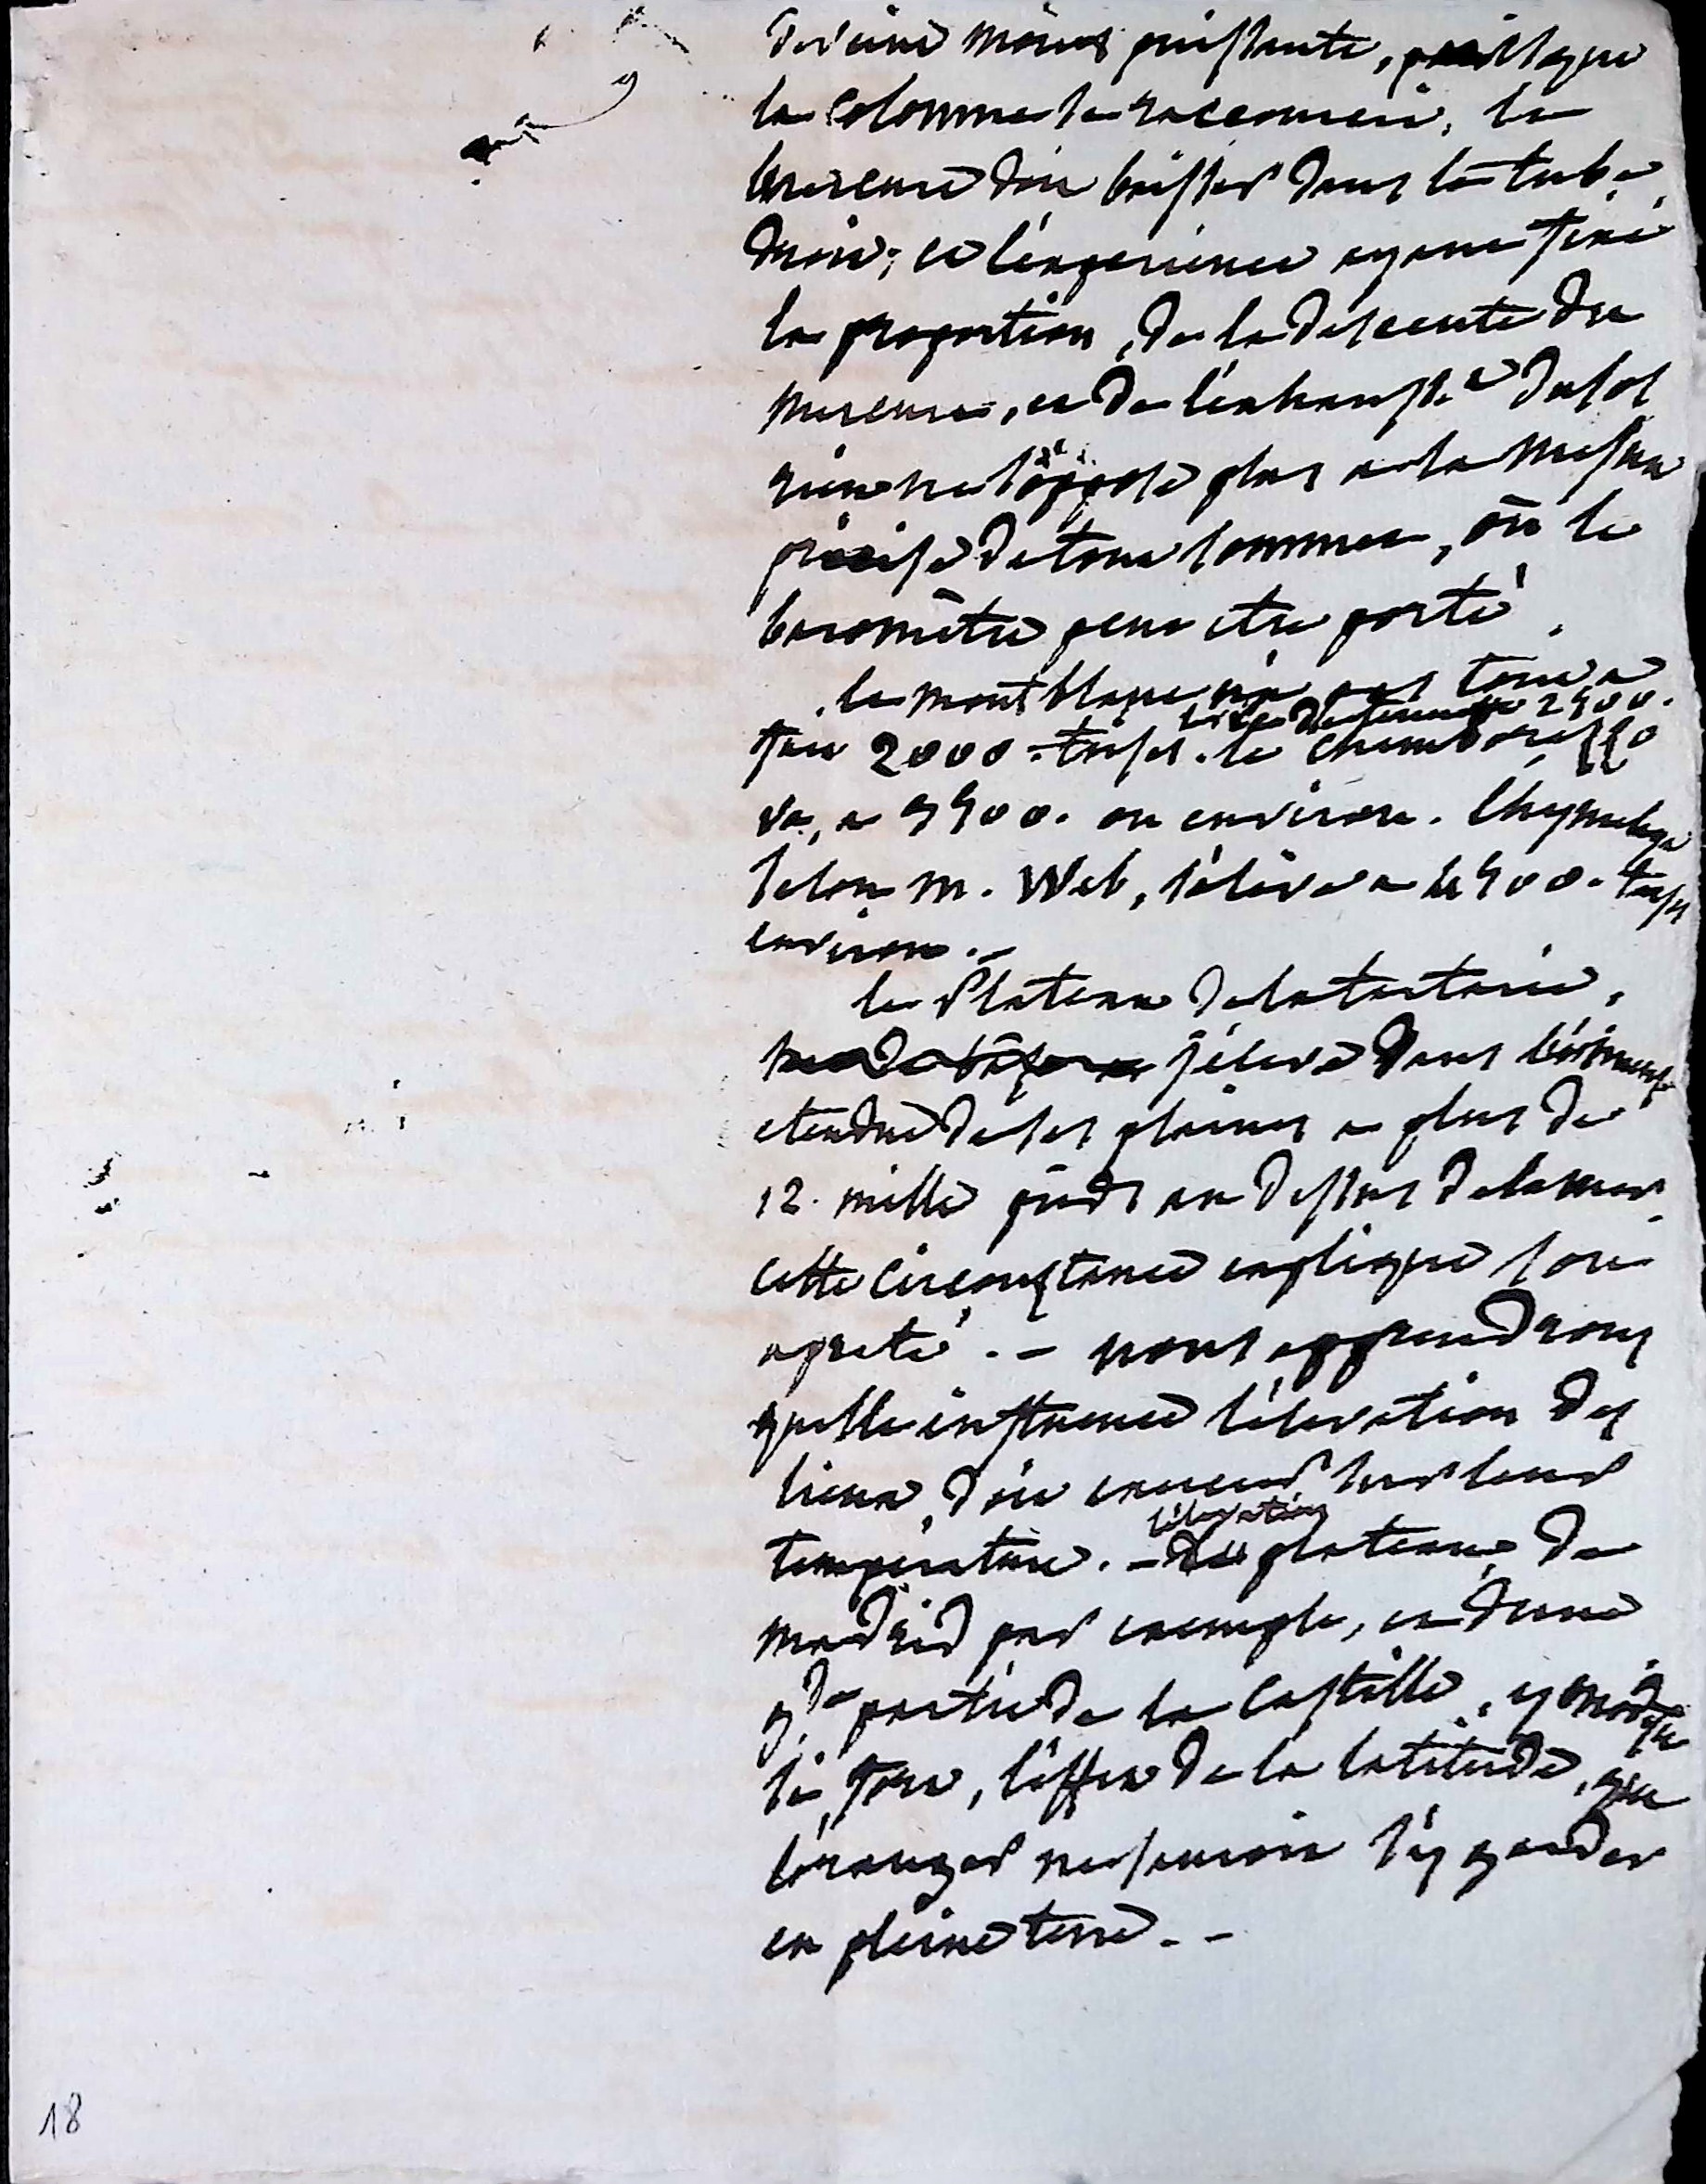 devient moins puissante, puisque
la colonne se raccourcit, le
mercure doit baisser dans le tube
droit; et l'experience ayant fixé
la proportion, de la descente du
mercure, et de l'exhausst.t du sol
rien ne s'oppose plus a la mesure
précise de tout sommet, où le
baromètre peut etre porté.
le mont blanc n'a pas tout a
fait 2000 toises. le Chimborasso
2400.
va, a 3400. ou environ. l'hymalaya
selon m. Web, s'élève a 4400. toises
environ. -
le Plateau de la tartarie,
s'éleve dans l'immense
etendue de ses plaines a plus de
12. mille pieds au dessus de la mer
cette circonstance explique son
apreté. - nous apprendrons
quelle influence l'élevation des
lieux, doit exercer sur leur
temperature. - l'élevation du plateau de
madrid par exemple, et d'une
g.de partie de la Castille, y modifie
si fort, l'effet de la latitude, que
l'oranger ne sauroit s'y garder
en pleine terre. -
18